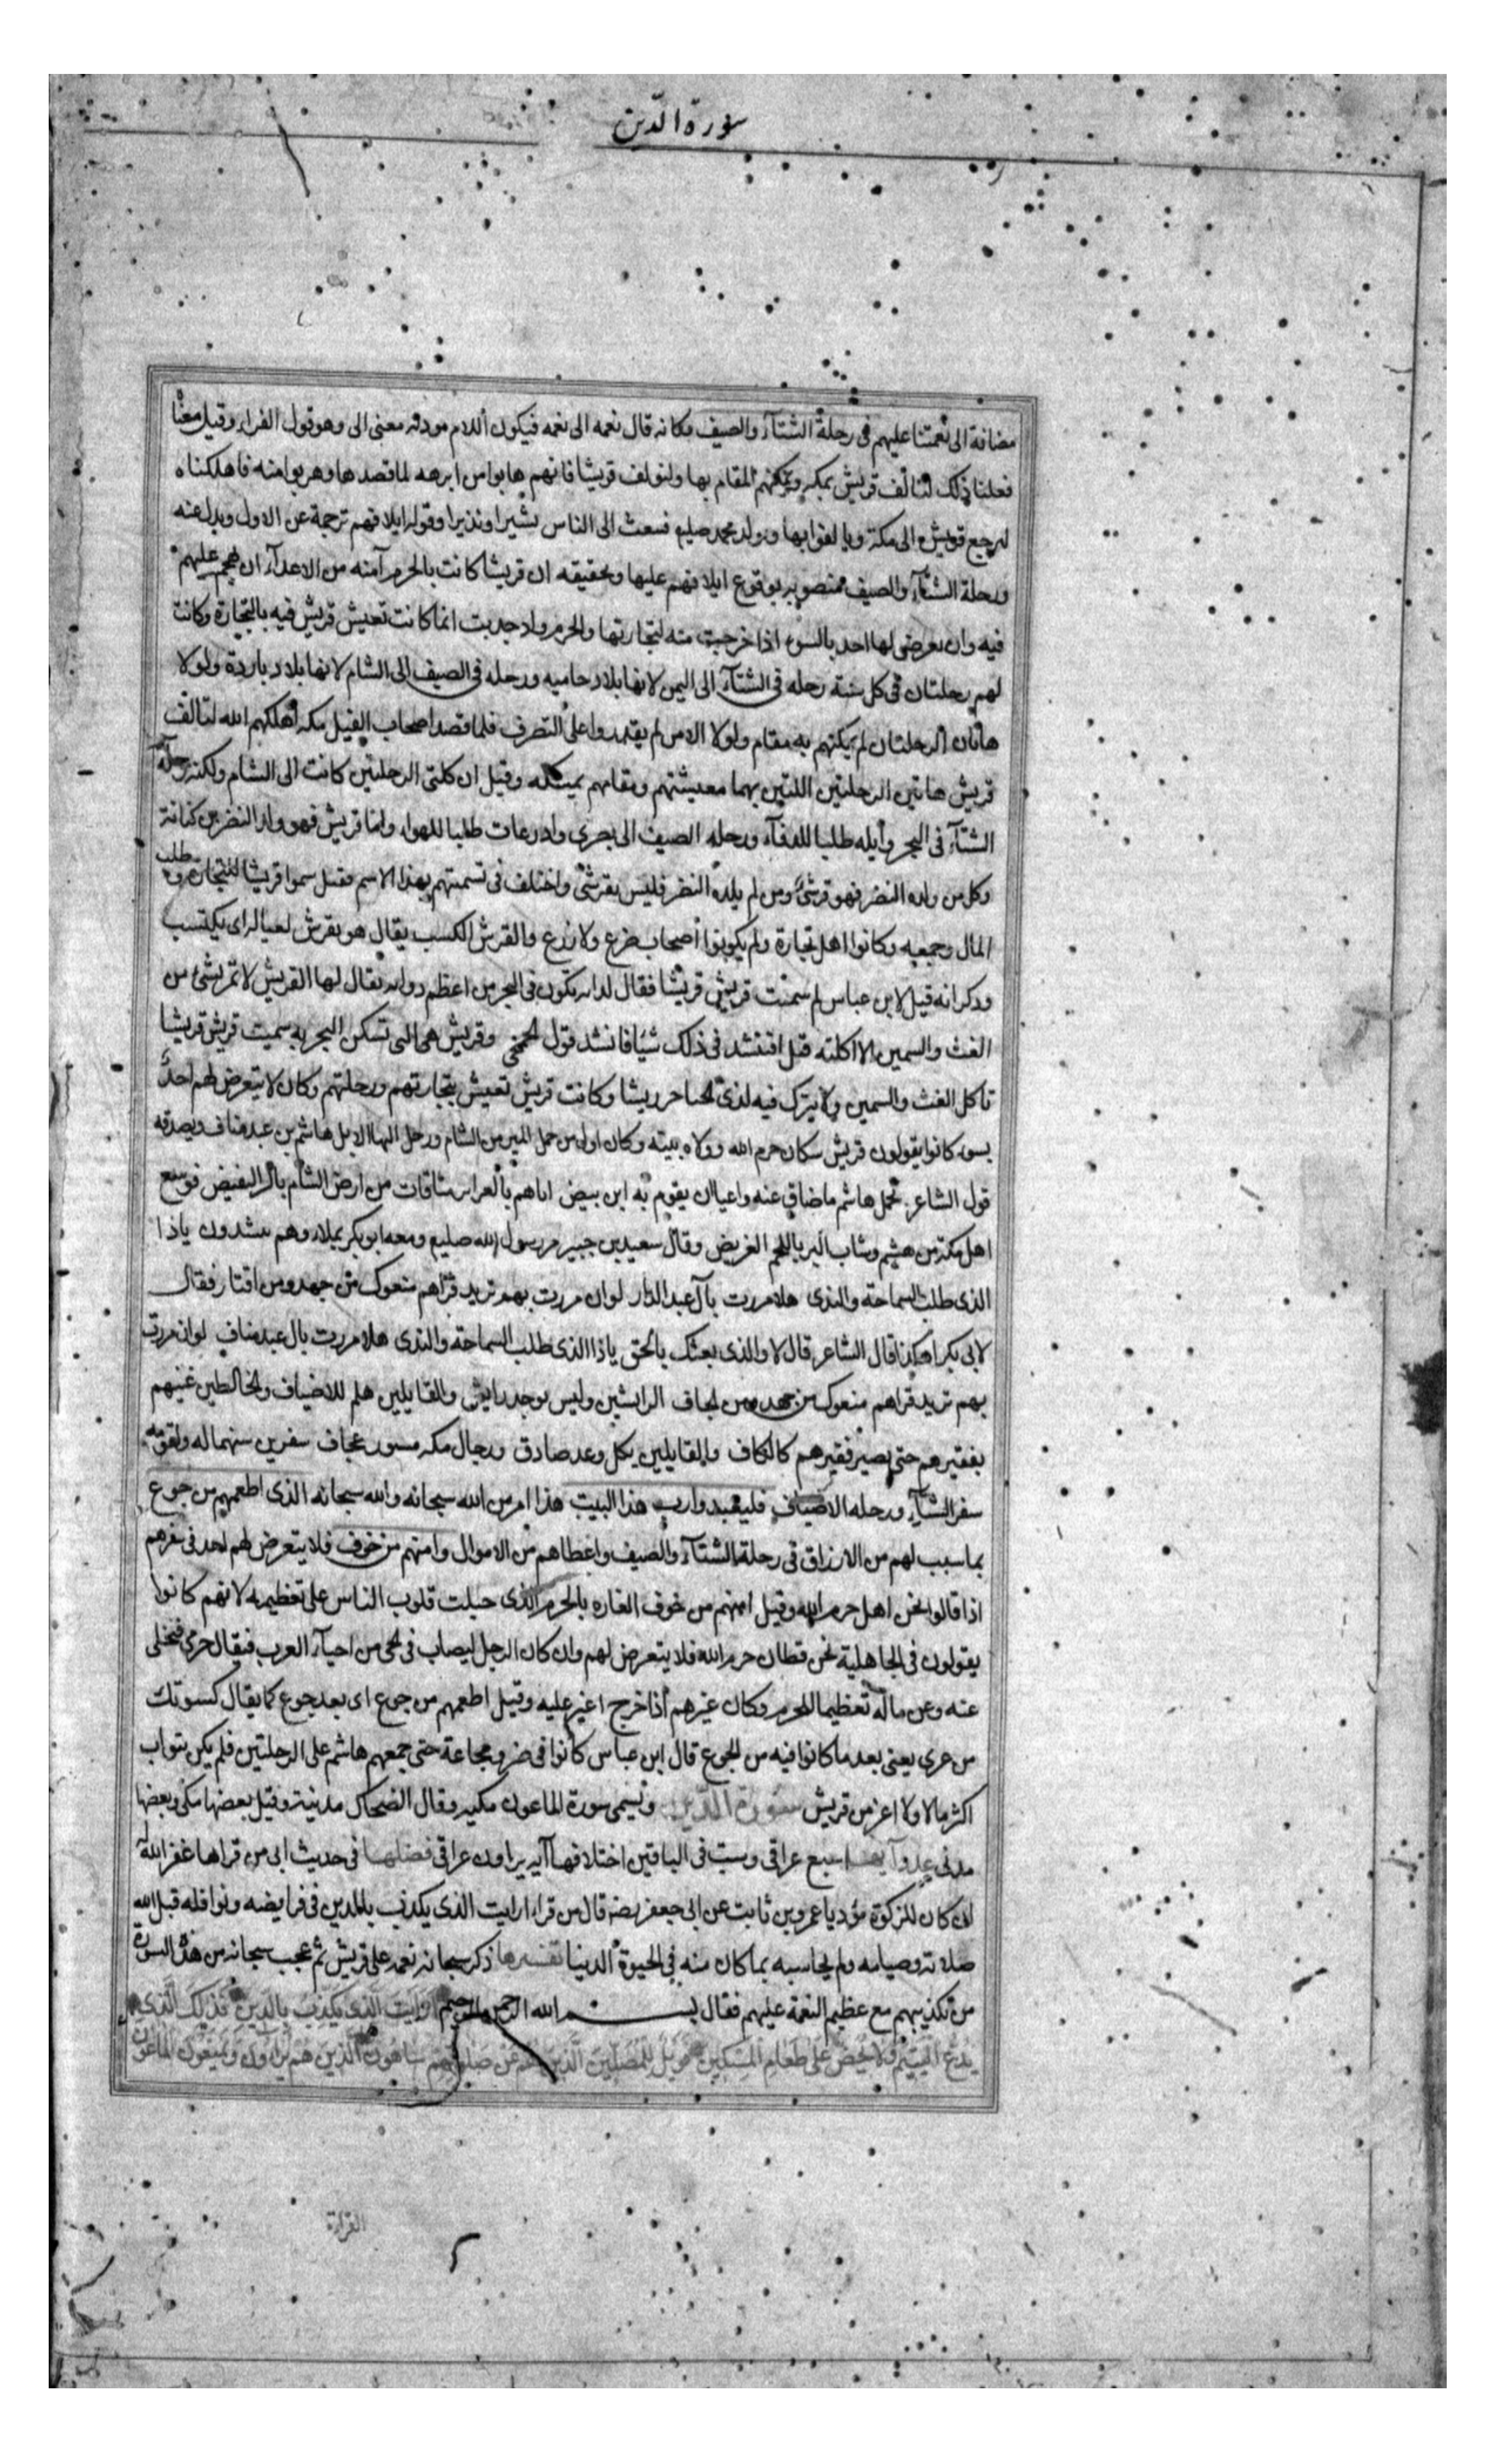 سورة الدين
مضافة الى نعمتنا عليهم فى رحلة الشتآء والصيف فكانه قال نعمه الى نعمه فيكون اللام مودنه معنى الى وهو قول الفراء وقيل معناه
فعلنا ذلك لتالف قريش بمكه ويمكنهم المقام بها ولنولف قريشا فانهم هابوا من ابرهه لما قصدها وهربوا منه فاهلكناه
لترجع قريش الى مكة ويالفوا بها ويولد محمد صليع فبعث الى الناس بشيرا ونذيرا وقوله ايلافهم ترجمة عن الاول وبدل عنه
ورحلة الشتآء والصيف منصوبه بوقوع ايلافهم عليها وتحقيقه ان قريشا كانت بالحرم آمنه من الاعدآء ان تهجم عليهم
فيه وان يعرض لها احد بالسوء اذا خرجت منه لتجارتها والحرم واد جديب انما كانت تعيش قريش فيه بالتجارة وكانت
لهم رحلتان فى كل سنة رحله فى الشتآء الى اليمن لانها بلاد حاميه ورحله فى الصيف الى الشام لانها بلاد باردة ولولا
هاتان الرحلتان لم يمكنهم به مقام ولولا الامن لم يقدروا على التصرف فلما قصد اصحاب الفيل مكه اهلكهم الله لتالف
قريش هاتين الرحلتين اللتين بهما معيشتهم ومقامهم بمكه وقيل ان كلتى الرحلتين كانت الى الشام ولكنه رحله
الشتآء فى البحر وأيله طلبا للدفآء ورحله الصيف الى بصرى واذرعات طلبا للهواء واما قريش فهو ولد النضر بن كنانة
وكل من ولده النضر فهو قرشى ومن لم يلده النضر فليس بقرشى واختلف فى تسميتهم بهذا الاسم فقيل سموا قريشا للتجارة وطلب
المال وجمعه وكانوا اهل تجارة ولم يكونوا أصحاب ضرع ولا زرع والقرش الكسب يقال هو يقرش لعياله اى يكتسب
وذكر انه قيل لابن عباس لم سميت قريش قريشا فقال لدابه تكون فى البحر من اعظم دوابه يقال لها القريش لا تمر بشئ من
الغث والسمين الا اكلته قيل افتنشد فى ذلك شيئا فانشد قول الجمحى وقريش هى التى تسكن البحر به سميت قريش قريشا
تاكل الغث والسمين ولا يترك فيه لذى لجناحين ريشا وكانت قريش تعيش بتجارتهم ورحلتهم وكان لا يتعرض لهم احد
بسوء كانوا يقولون قريش سكان حرم الله وولاه بيته وكان اول من حمل المير من الشام ورحل اليها الابل هاشم بن عبد مناف ويصدقه
قول الشاعر تحمل هاشم ما ضاق عنه واعيا ان يقوم به ابن بيض اتاهم بالغراير متاقات من ارض الشام بالبر النفيض فوسع
اهل مكة من هشيم وشاب البر باللحم الغريض وقال سعيد بن جبير مر رسول الله صليع ومعه ابو بكر بملاء وهم ينشدون ياذا
الذى طلب السماحة والندى هلا مررت بآل عبد الدار لو ان مررت بهم تريد قراهم منعوك من جهد ومن اقتار فقال
لابى بكر اهكذا قال الشاعر قال لا والذى بعثك بالحق ياذا الذى طلب السماحة والندى هلا مررت بال عبد مناف لو ان مررت
بهم تريد قراهم منعوك من جهد ومن ايجاف الرائشين وليس يوجد رايش والقايلين هلم للاضياف والخالطين غنيهم
بفقيرهم حتى يصير فقيرهم كالكاف والقايلين بكل وعد صادق ورجال مكه مسنون عجاف سفرين سنهما له ولقومه
سفر الشتآء ورحله الاصياف فليعبدوا رب هذا البيت هذا امر من الله سبحانه والله سبحانه الذى اطعمهم من جوع
بما سبب لهم من الارزاق فى رحلة الشتآء والصيف واعطاهم من الاموال وامنهم من خوف فلا يتعرض لهم احد فى سفرهم
اذا قالوا نحن اهل حرم الله وقيل امنهم من خوف الغاره بالحرم الذى جبلت قلوب الناس على تعظيمه لانهم كانوا
يقولون فى الجاهلية نحن قطان حرم الله فلا يتعرض لهم وان كان الرجل ليصاب فى الحى من احيآء العرب فيقال حرمى فيخلى
عنه وعن ماله تعظيما للحرم وكان غيرهم اذا خرج اغير عليه وقيل اطعمهم من جوع اى بعد جوع كما يقال كسوتك
من عرى يعنى بعد ما كانوا فيه من الجوع قال ابن عباس كانوا فى ضر ومجاعة حتى جمعهم هاشم على الرحلتين فلم يكن بنو اب
اكثر مالا ولا اعز من قريش سورة الدين وتسمى سورة الماعون مكيه وقال الضحاك مدنية وقيل بعضها مكى وبعضها
مدنى عدد آيها سبع عراقى وست فى الباقين اختلافها آيه يراون عراقى فضلها فى حديث ابى من قراها غفر الله له
ان كان للزكوة مؤديا عمرو بن ثابت عن ابى جعفر قال من قراء ارايت الذى يكذب بالدين فى فرايضه ونوافله قبل الله
صلاته وصيامه ولم يحاسبه بما كان منه فى الحيوة الدنيا تفسيرها ذكر سبحانه نعمه على قريش ثم عجب سبحانه من هذه السورة
من تكذيبهم مع عظيم النعمة عليهم فقال بسم الله الرحمن الرحيم ارايت الذى يكذب بالدين فذلك الذى
يدع اليتيم ولا يحض على طعام المسكين فويل للمصلين الذين هم عن صلوتهم ساهون الذين هم يراون ويمنعون الماعون
القراءة